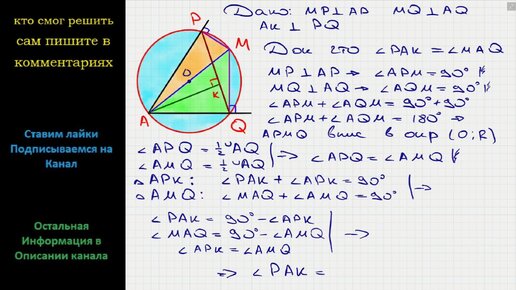 кто смог решить
сам пишите в
комментариях
Ставим лайки
Подписываемся на
Канал
Остальная
Информация в
Описании канала
P
M
O
K
A
Q
Дано: MP⊥AP MQ⊥AQ
AK ⊥ PQ
Док что ∠PAK = ∠MAQ
MP⊥AP → ∠APM = 90°
MQ⊥AQ → ∠AQM = 90°
∠APM + ∠AQM = 90° + 90°
∠APM + ∠AQM = 180° ⇒
APMQ впис в окр (O; R)
∠APQ = ½ ◡AQ
∠AMQ = ½ ◡AQ |⇒ ∠APQ = ∠AMQ
△APK: ∠PAK + ∠APK = 90°
△AMQ: ∠MAQ + ∠AMQ = 90° |→
∠PAK = 90° - ∠APK
∠MAQ = 90° - ∠AMQ |→
∠APK = ∠AMQ
⇒ ∠PAK =